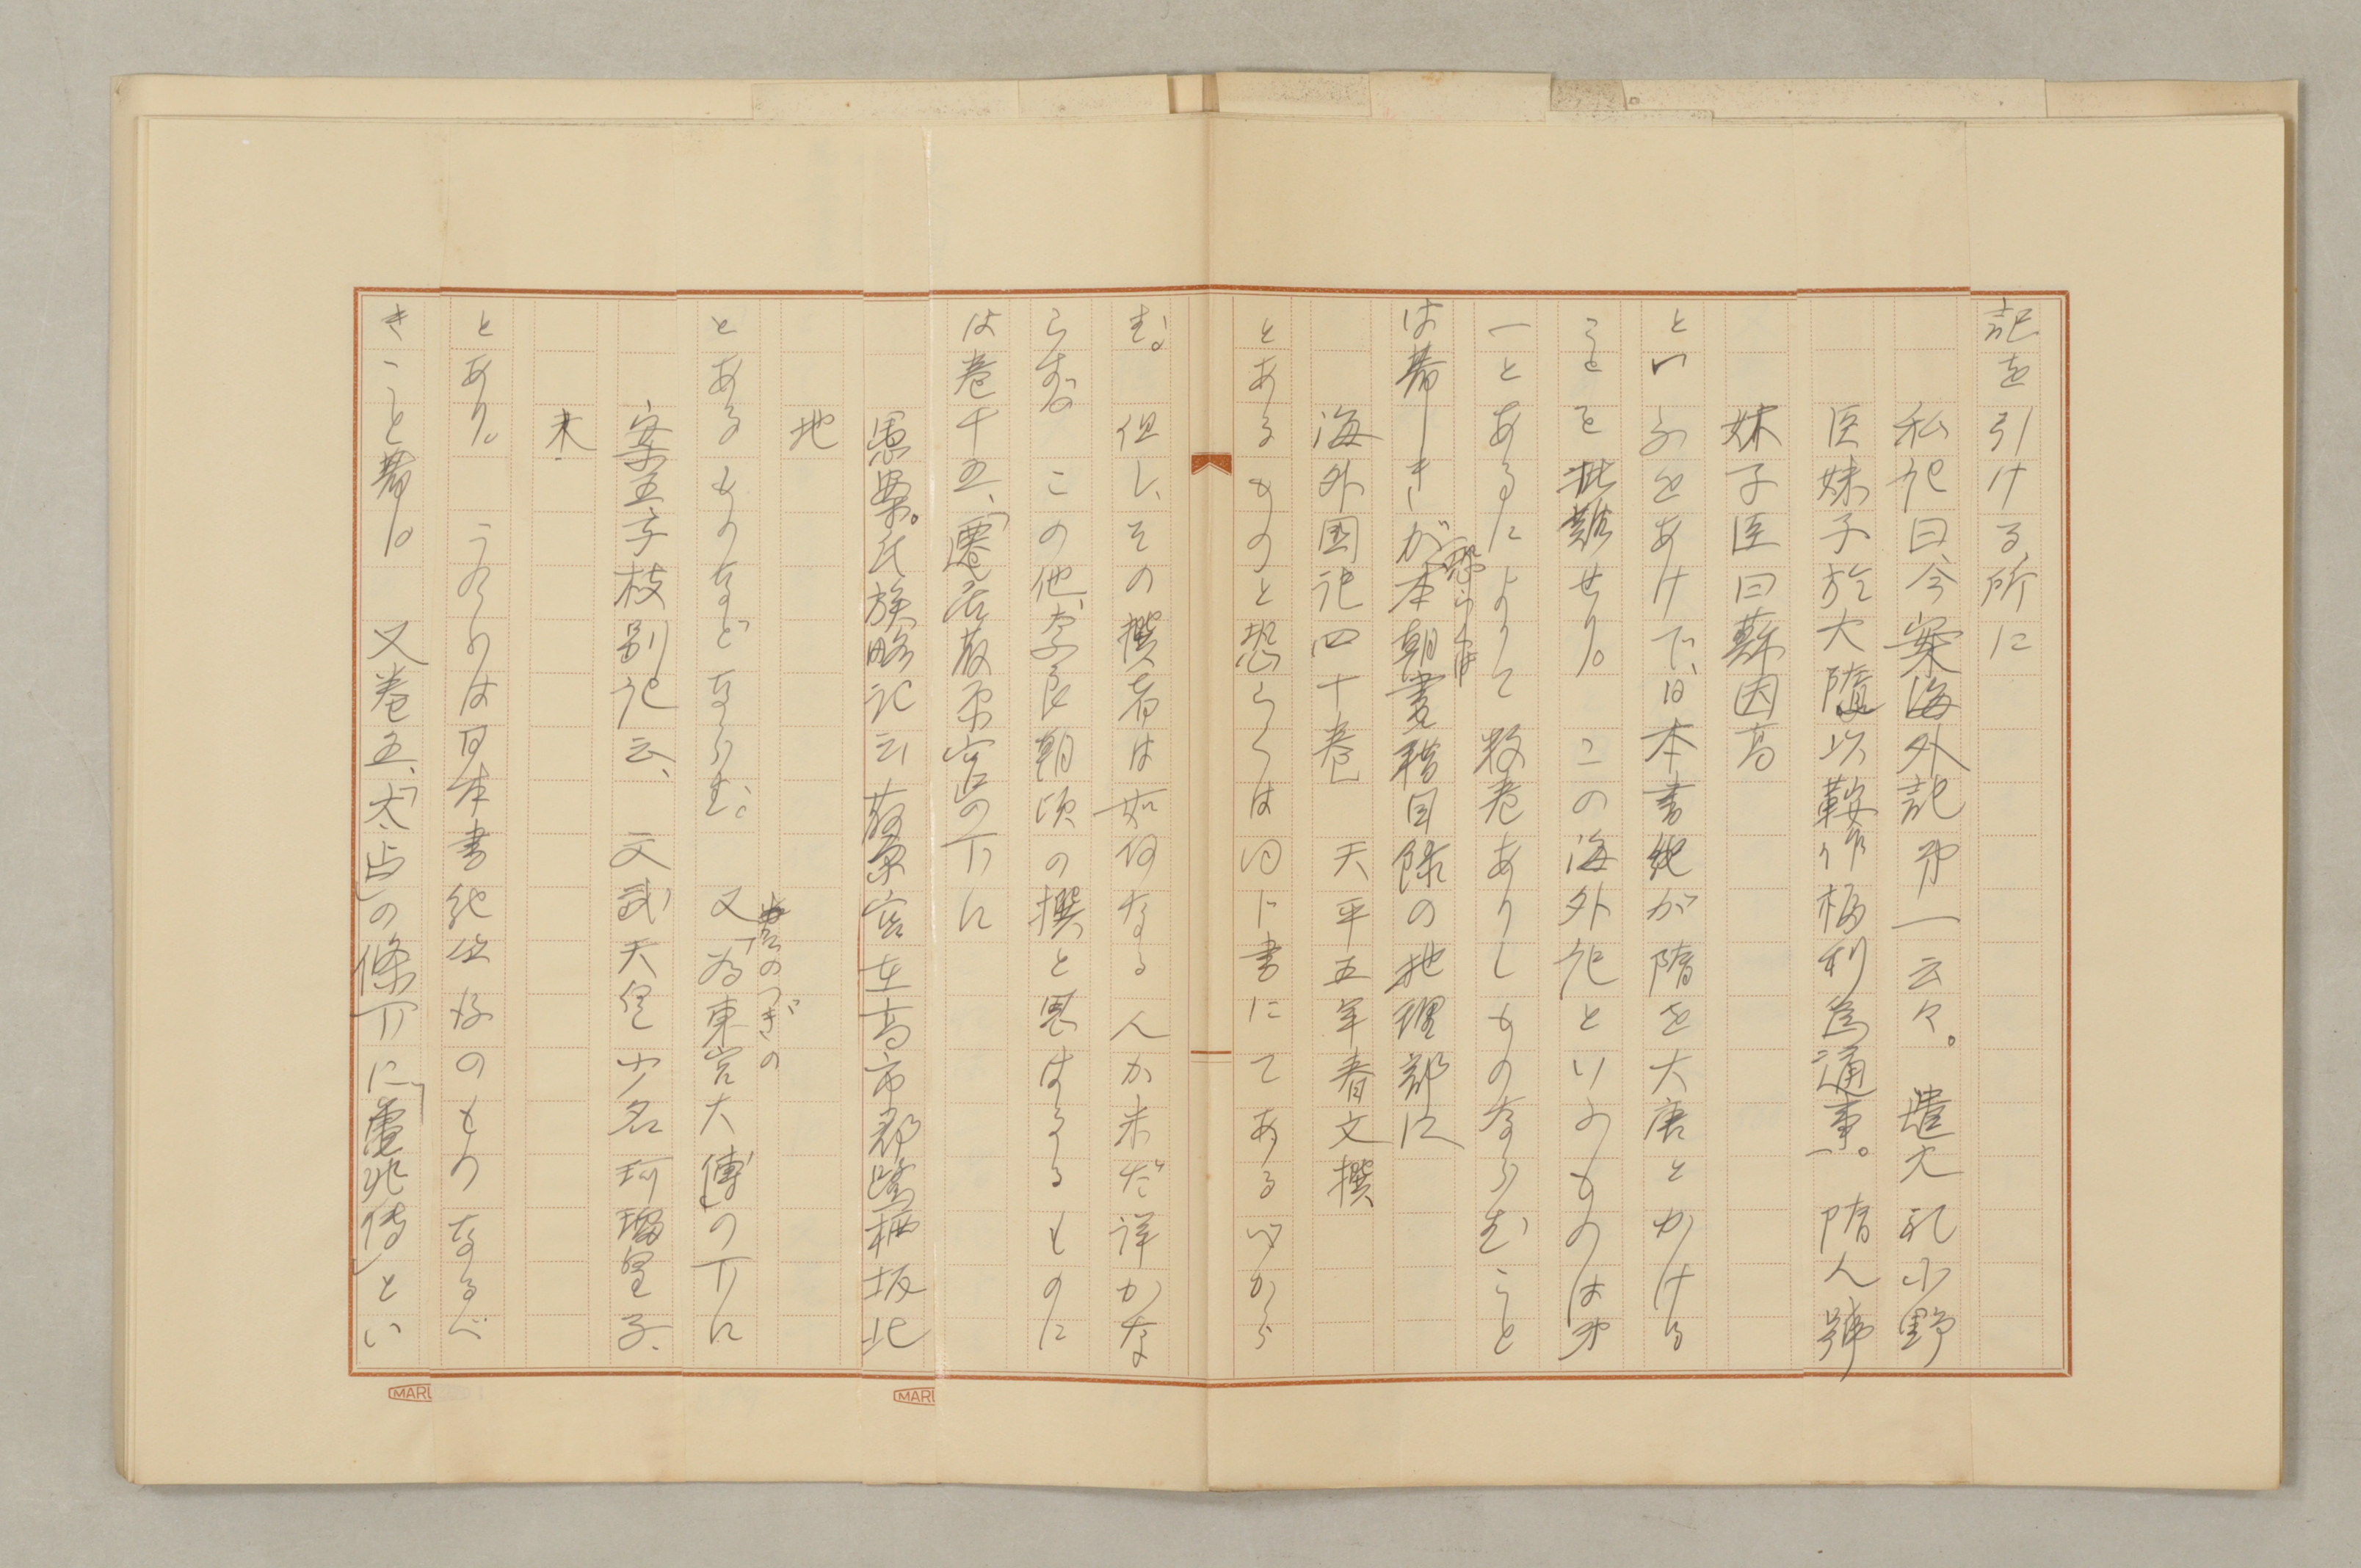 記を引ける所に
私記曰、今案海外記第一云々。遣大礼小野
臣妹子於大隨以鞍作福利為通事。隋人號
妹子臣曰蘇因高
といふをあげて、日本書紀が隋を大唐とかける
ことを批難せり。この海外記といふものは第
一とあるによりて数巻ありしものならむこと
は著しきが、恐らくは本朝書籍目録の地理部に
海外国記四十巻 天平五年春文撰
とあるものと恐らくは同じ書にてあるべから
む。但し、その撰者は如何なる人か未だ詳かな
らず。この他、奈良朝頃の撰と思はるるものに
は巻十五、「遷居藤原宮」の下に
愚案。氏族略記云藤原宮在高市郡鷺栖坂北
地
とあるものなどならむ。又巻のつぎの「為東宮大傅」の下に
案王子枝別記云、文武天皇少名珂瑠皇子、
未
とあり。これらは日本書紀以後のものなるべ
きこと著し。又巻五、「太占」の條下に「亀兆傳」とい
MARU
MARU